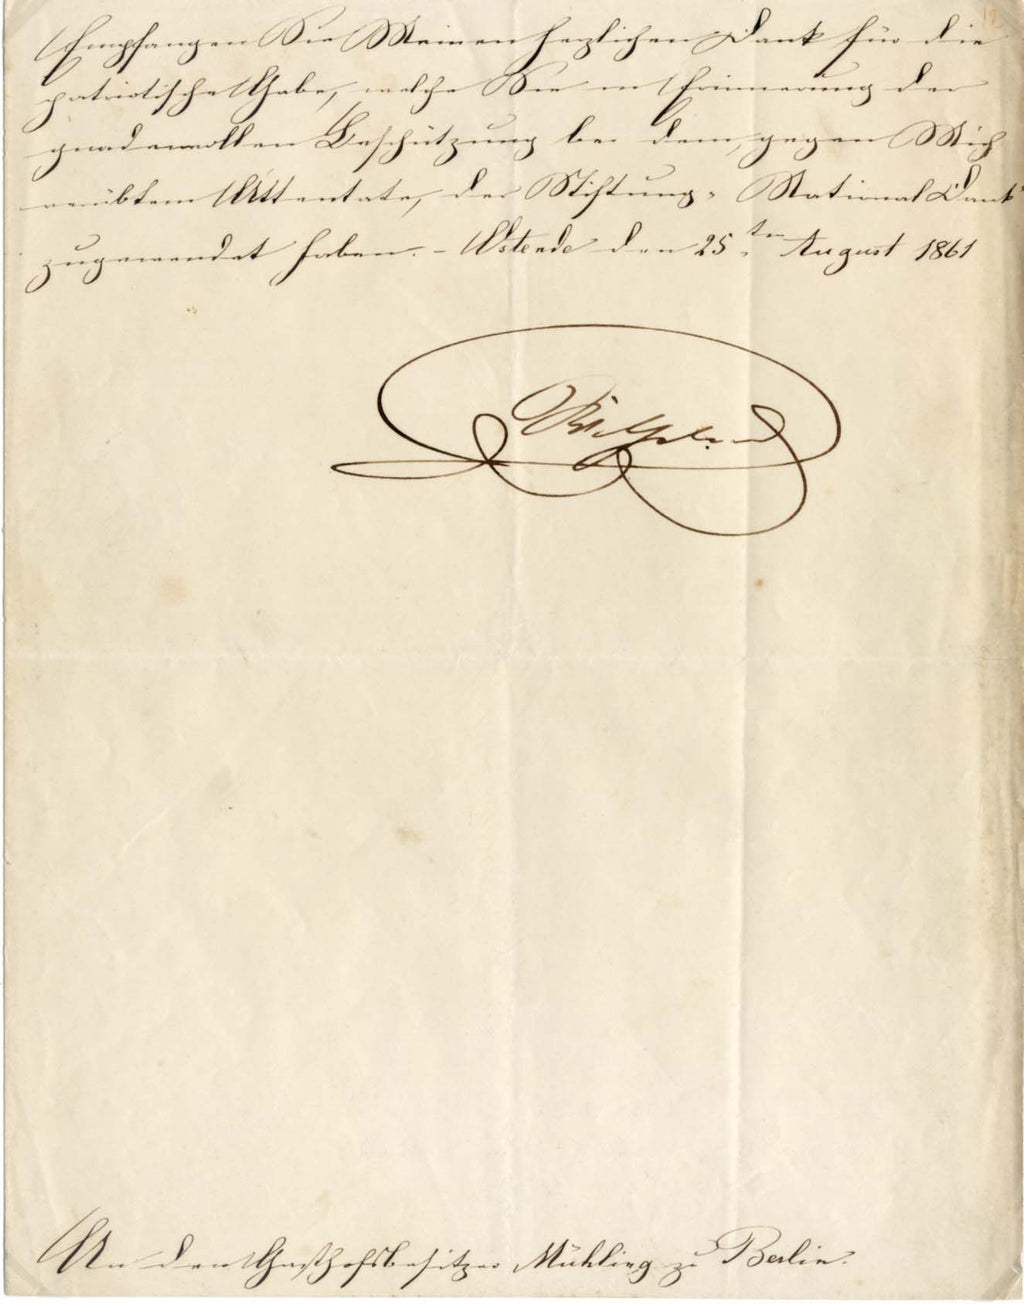 Empfangen Sie Meinen herzlichen Dank für die
patriotische Gabe, welche Sie in Erinnerung der
gnadenvollen Beschützung bei dem, gegen Mich
verübtem Attentate, der Stiftung, National Dank
zugewendet haben. – Ostende den 25ten August 1861
Wilhelm
An den Gasthofsbesitzer Mühling zu Berlin.